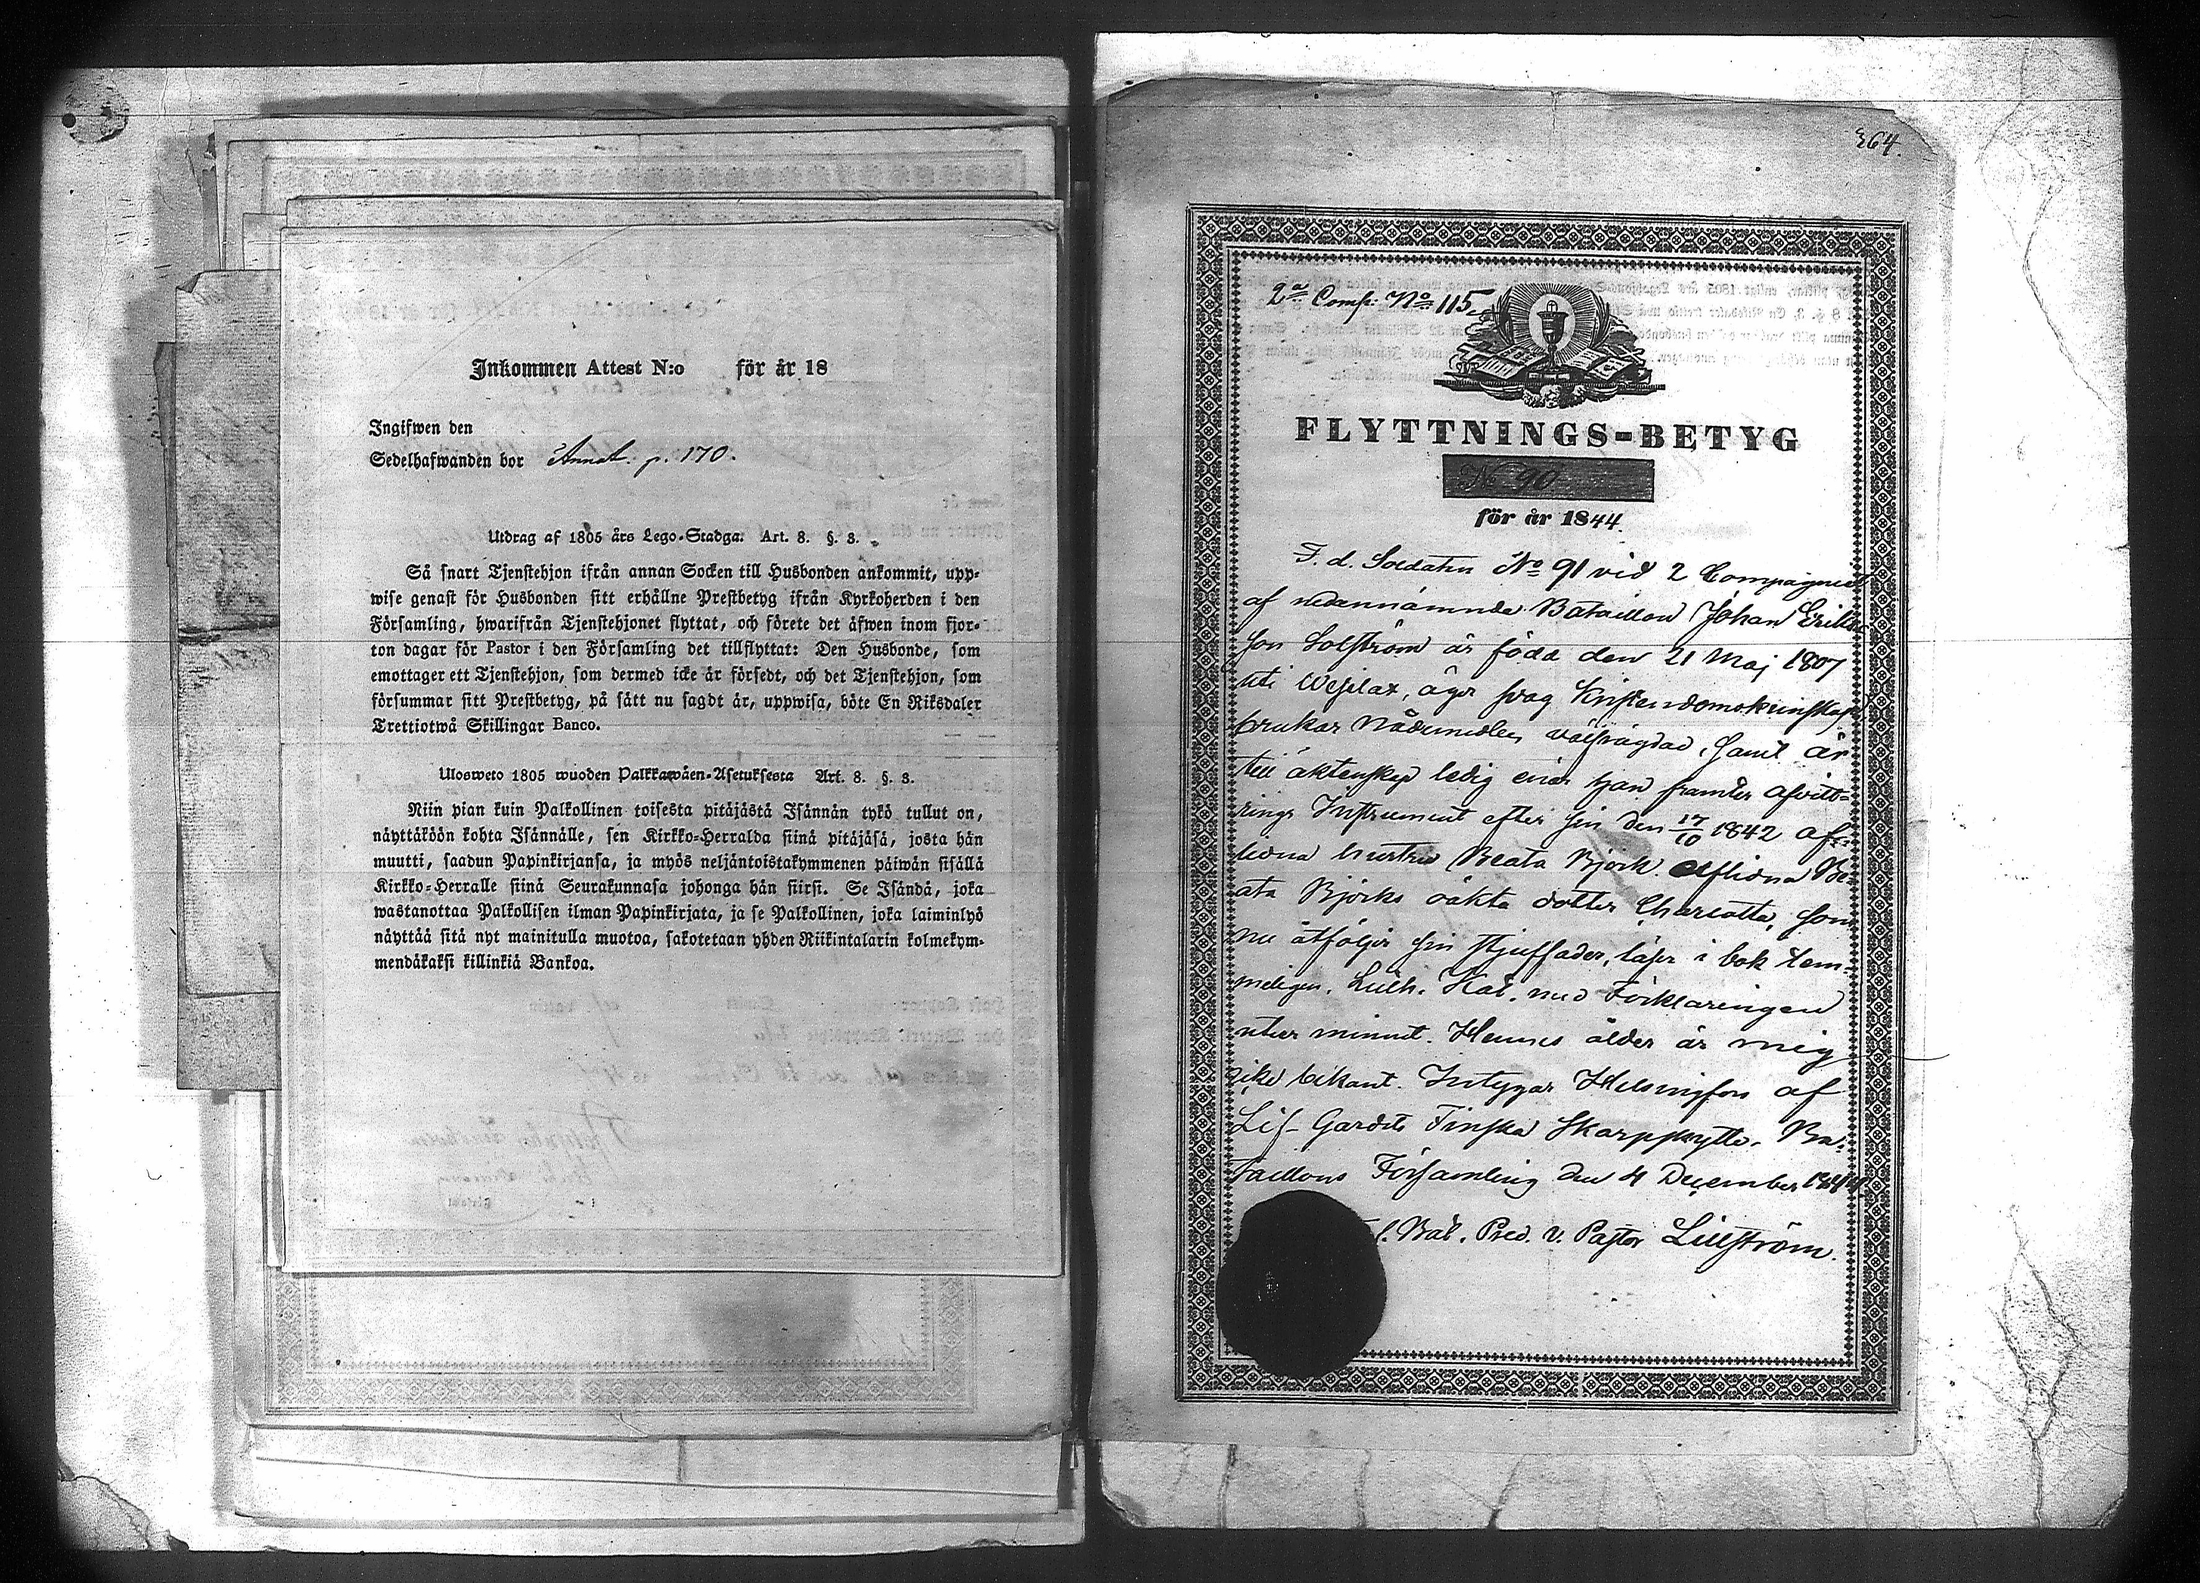 Inkommen Attest N:o för år 18
Ingifwen den
Sedelhafwanden bor Annat. p. 170.
Utdrag af 1805 års Lego-Stadga. Art. 8. §. 3.
Så snart Tjenstehjon ifrån annan Socken till Husbonden ankommit, upp-
wise genast för Husbonden sitt erhållne Prestbetyg ifrån Kyrkoherden i den
Församling, hwarifrån Tjenstehjonet flyttat, och förete det äfwen inom fjor-
ton dagar för Pastor i den Församling det tillflyttat: Den Husbonde, som
emottager ett Tjenstehjon, som dermed icke är försedt, och det Tjenstehjon, som
försummar sitt Prestbetyg, på sätt nu sagdt är, uppwisa, böte En Riksdaler
Trettiotwå Skillingar Banco.
Ulosweto 1805 wuoden Palkkawäen-Asetuksesta Art. 8. §. 3.
Niin pian kuin Palkollinen toisesta pitäjästä Isännän tykö tullut on,
näyttäköön kohta Isännälle, sen Kirkko-Herralda siinä pitäjäsä, josta hän
muutti, saadun Papinkirjansa, ja myös neljäntoistakymmenen päiwän sisällä
Kirkko-Herralle siinä Seurakunnasa johonga hän siirsi. Se Isändä, joka
wastanottaa Palkollisen ilman Papinkirjata, ja se Palkollinen, joka laiminlyö
näyttää sitä nyt mainitulla muotoa, sakotetaan yhden Riikintalarin kolmekym-
mendäkaksi killinkiä Bankoa.
364.
2a Comp: No 115.
FLYTTNINGS-BETYG
No 90
för år 1844.
F. d. Soldaten No 91 vid 2 Compagniet
af nedannämnda Bataillon Johan Eriks
son Solström är född den 21 Maj 1807
uti Wesilax, äger svag Kristendomskunskap
brukar Nådemedlen, samt är
till äktenskap ledig enär han framter afvitt-
rings Instrument efter sin den 17/10 1842 af-
lidna hustru Beata Björk. Aflidna Be-
ata Björks oäkta dotter Charlotta, som
nu åtföljer sin stjuffader, läser i bok tem-
meligen, Luth. Kat. med Förklaringen
utur minnet. Hennes ålder är mig
icke bekant. Intygar Helsingfors af
Lif-Gardets Finska Skarpskytte-Ba-
taillons Församling den 4 December 1844
Bat. Pred. v. Pastor Lillström.